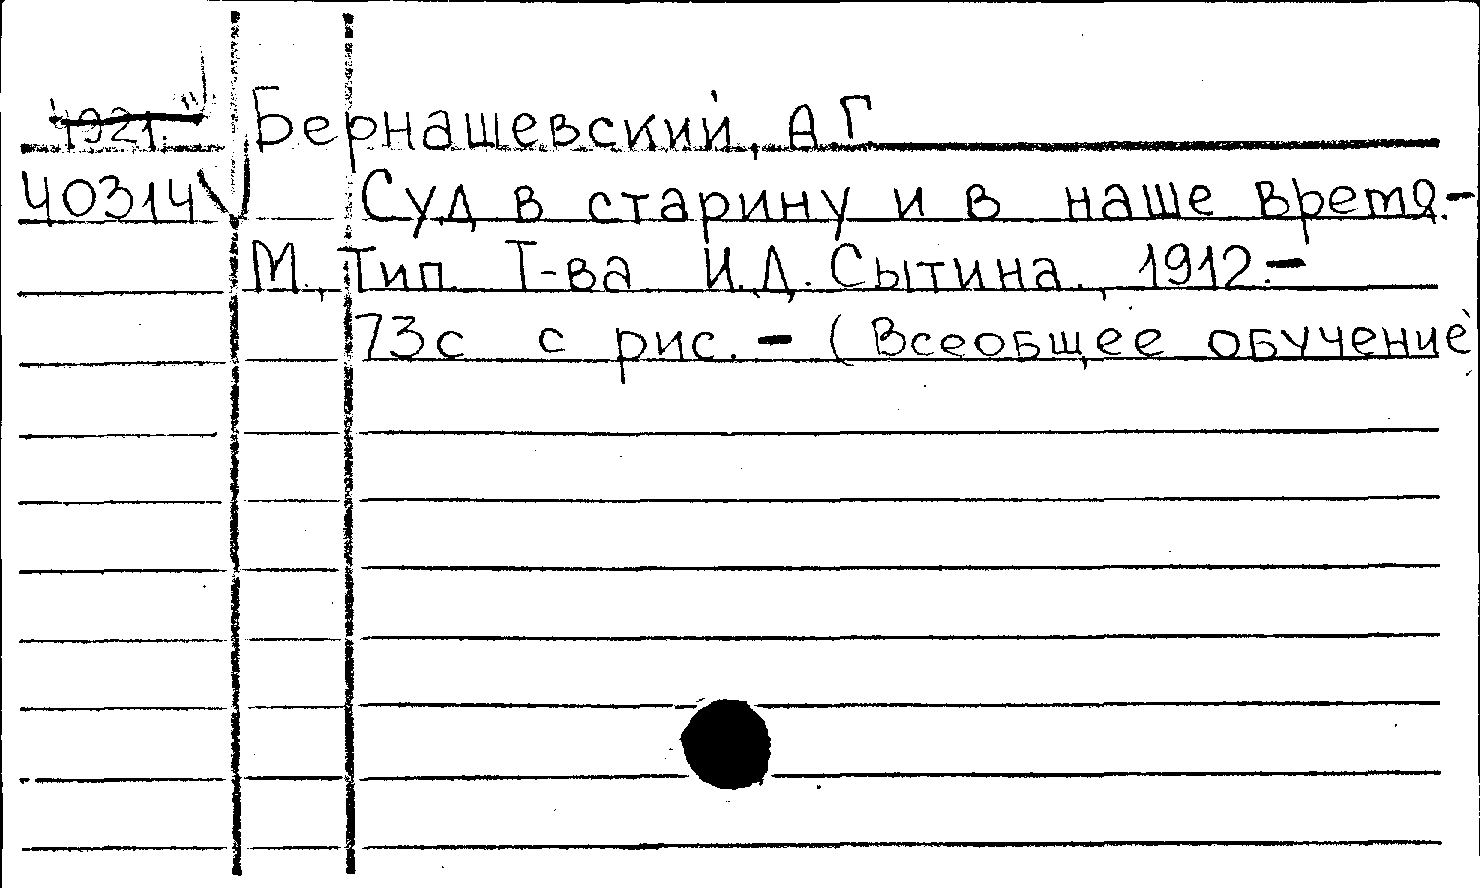 Бернашевский, А.Г
40314 Суд в старину и в наше время.-
М., Тип. Т-ва И.Д. Сытина, 1912.-
73с с рис. - (Всеобщее обучение)